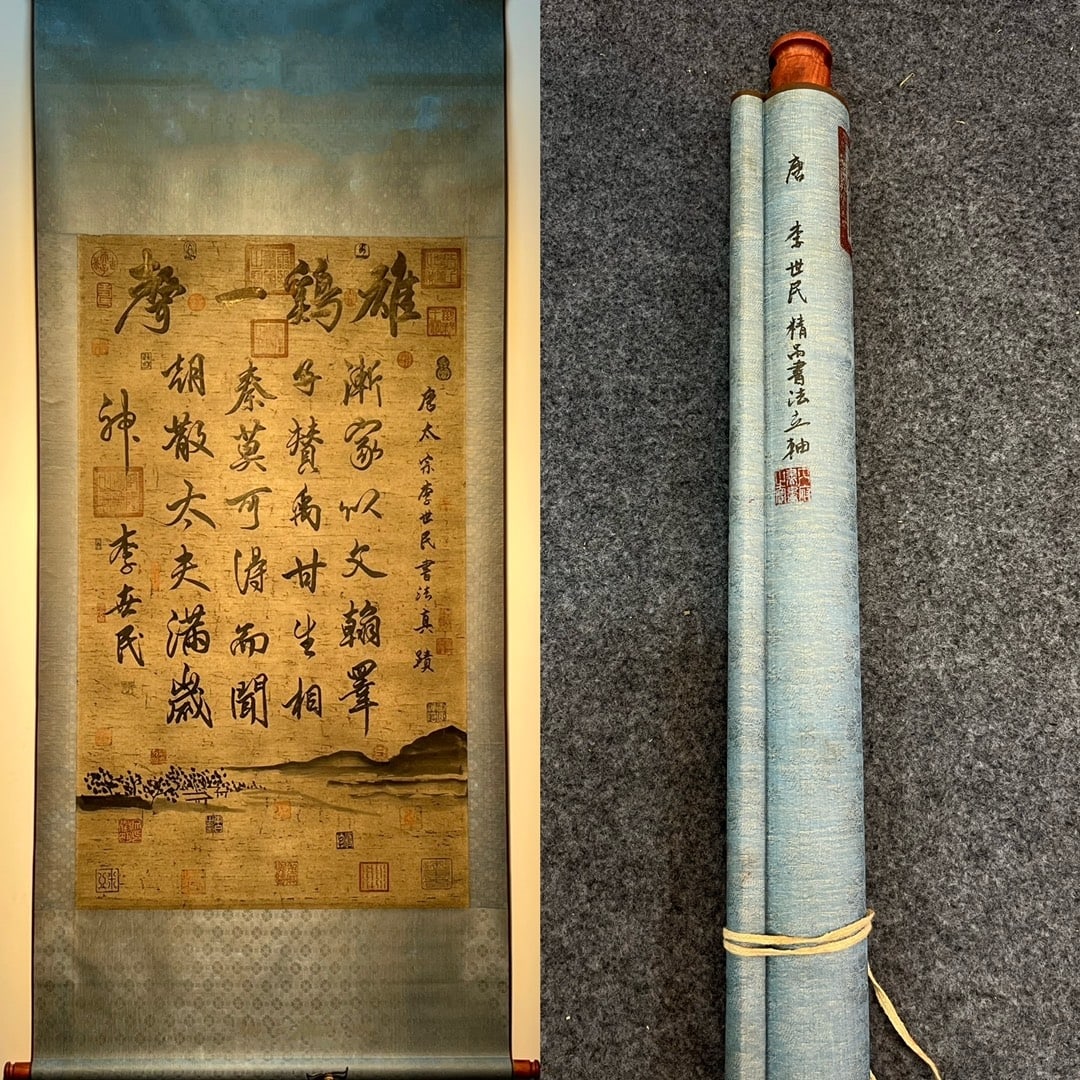 雄鷄一聲
唐太宗李世民書法真蹟
漸家以文翰罩
子贊禹甘生相
秦莫可得而聞
胡散太夫滿歲
神
李世民
唐 李世民精品書法立軸